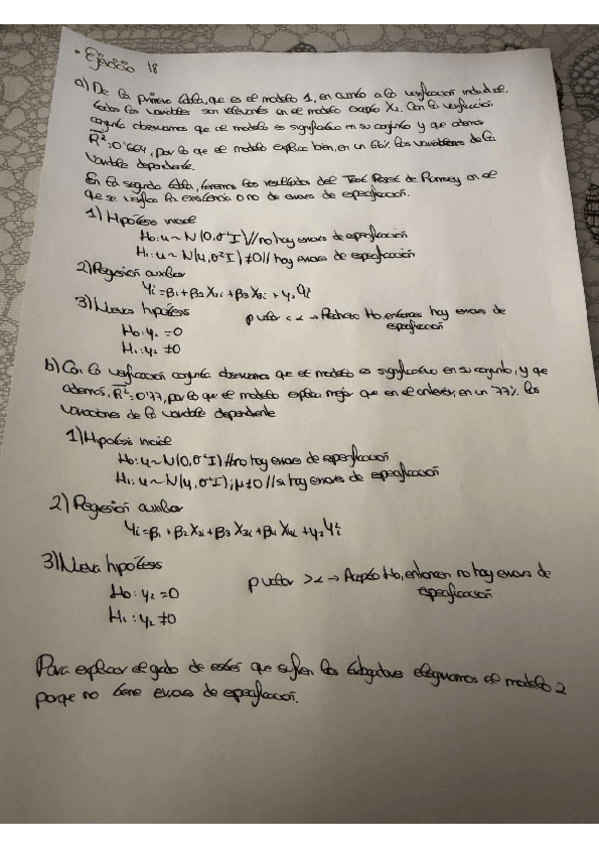 • Ejercicio 18
a) De la primera tabla, que es el modelo 1, en cuanto a la verificación individual
todas las variables son relevantes en el modelo excepto X2. Con la verificación
conjunta observamos que el modelo es significativo en su conjunto y que además
R̄²=0'664, por lo que el modelo explica bien, en un 66% las variaciones de la
variable dependiente.
En la segunda tabla, tenemos los resultados del Test Reset de Ramsey en el
que se verifica la existencia o no de errores de especificación.
1) Hipótesis inicial
H0: u ~ N(0,σ²I) // no hay errores de especificación
H1: u ~ N(μ,σ²I) ≠0 // hay errores de especificación
2) Regresión auxiliar
Yi = β1 + β2 X2i + β3 X3i + γ2 Ŷi²
3) Nueva hipótesis
H0: γ2 = 0
H1: γ2 ≠ 0
pvalor < α → Rechazo H0, entonces hay errores de
especificación
b) Con la verificación conjunta observamos que el modelo es significativo en su conjunto, y que
además, R̄²=0'77, por lo que el modelo explica mejor que en el anterior, en un 77% las
variaciones de la variable dependiente
1) Hipótesis inicial
H0: u ~ N(0,σ²I) // no hay errores de especificación
H1: u ~ N(μ,σ²I); μ≠0 // si hay errores de especificación
2) Regresión auxiliar
Yi = β1 + β2 X2i + β3 X3i + β4 X4i + γ2 Ŷi²
3) Nueva hipótesis
H0: γ2 = 0
H1: γ2 ≠ 0
pvalor > α → Acepto H0, entonces no hay errores de
especificación
Para explicar el grado de estrés que sufren los trabajadores elegiríamos el modelo 2
porque no tiene errores de especificación.